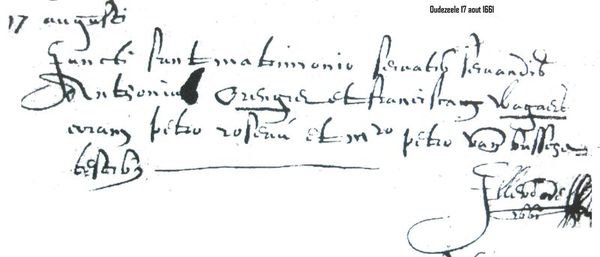 Oudezeele 17 aout 1661
17 augusti
Juncti sunt matrimonio servatis servandis
Antonius et francisca Bogaert
coram petro et mro petro van
testibus